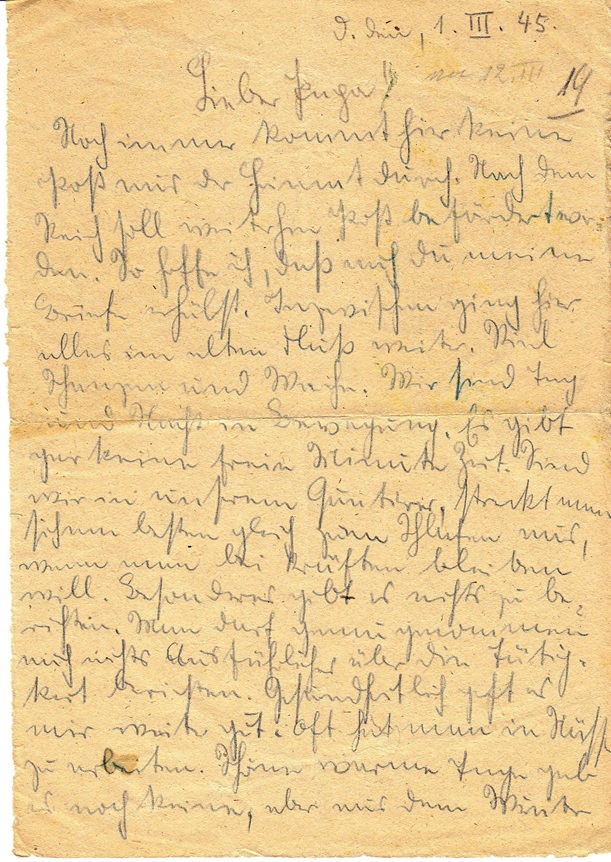 O. den, 1. III. 45.
Lieber Papa! 12. III 19
Noch immer kommt hier keine
Post aus der Heimat durch. Nach dem
Reich soll weiterhin Post befördert wer-
den. So hoffe ich, daß auch du meine
Briefe erhälst. Inzwischen ging hier
alles im alten Fluß weiter. Viel
Schanzen und Wache. Wir sind Tag
und Nacht in Bewegung. Es gibt
gar keine freie Minute Zeit. Sind
wir in unserem Quartier, streckt man
sich am besten gleich zum Schlafen aus,
wenn man bei Kräften bleiben
will. Besonderes gibt es nichts zu be-
richten. Man darf genau genommen
auch nichts Ausführliches über die Tätig-
keit berichten. Gesundheitlich geht es
mir weiter gut. Oft hat man in Nässe
zu arbeiten. Schöne warme Tage gab
es noch keine, aber aus dem Winter